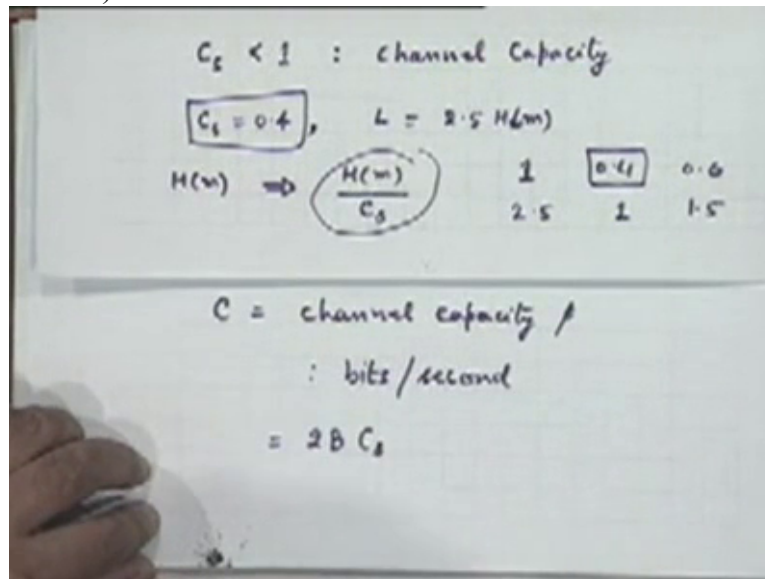 C_s < 1 : Channel Capacity
C_s = 0.4, L = 2.5 H(m)
H(m) ⇒ H(m)/C_s 1 0.4 0.6
2.5 1 1.5
C = channel capacity
: bits/second
= 2B C_s